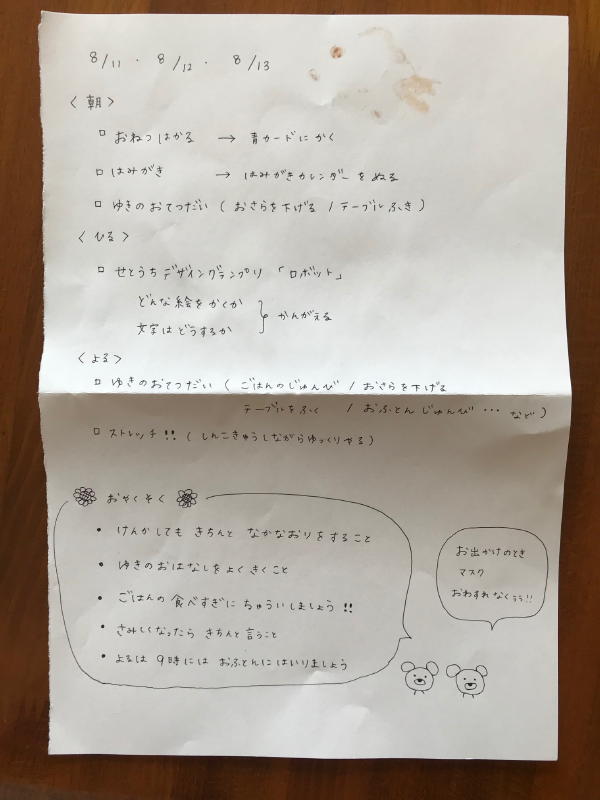 8/11 ・ 8/12 ・ 8/13
〈 朝 〉
□ おねつはかる → 青カードにかく
□ はみがき → はみがきカレンダーをぬる
□ ゆきのおてつだい ( おさらを下げる / テーブルふき )
〈 ひる 〉
□ せとうちデザイングランプリ 「ロボット」
どんな絵をかくか
文字はどうするか } かんがえる
〈 よる 〉
□ ゆきのおてつだい ( ごはんのじゅんび / おさらを下げる
テーブルをふく / おふとんじゅんび … など )
□ ストレッチ!! ( しんこきゅうしながらゆっくりやる )
おやくそく
• けんかしても きちんと なかなおりをすること
• ゆきのおはなしをよくきくこと
• ごはんの食べすぎに ちゅういしましょう!!
• さみしくなったら きちんと言うこと
• よるは 9時には おふとんにはいりましょう
お出かけのとき
マスク
おわすれなくぅぅ!!